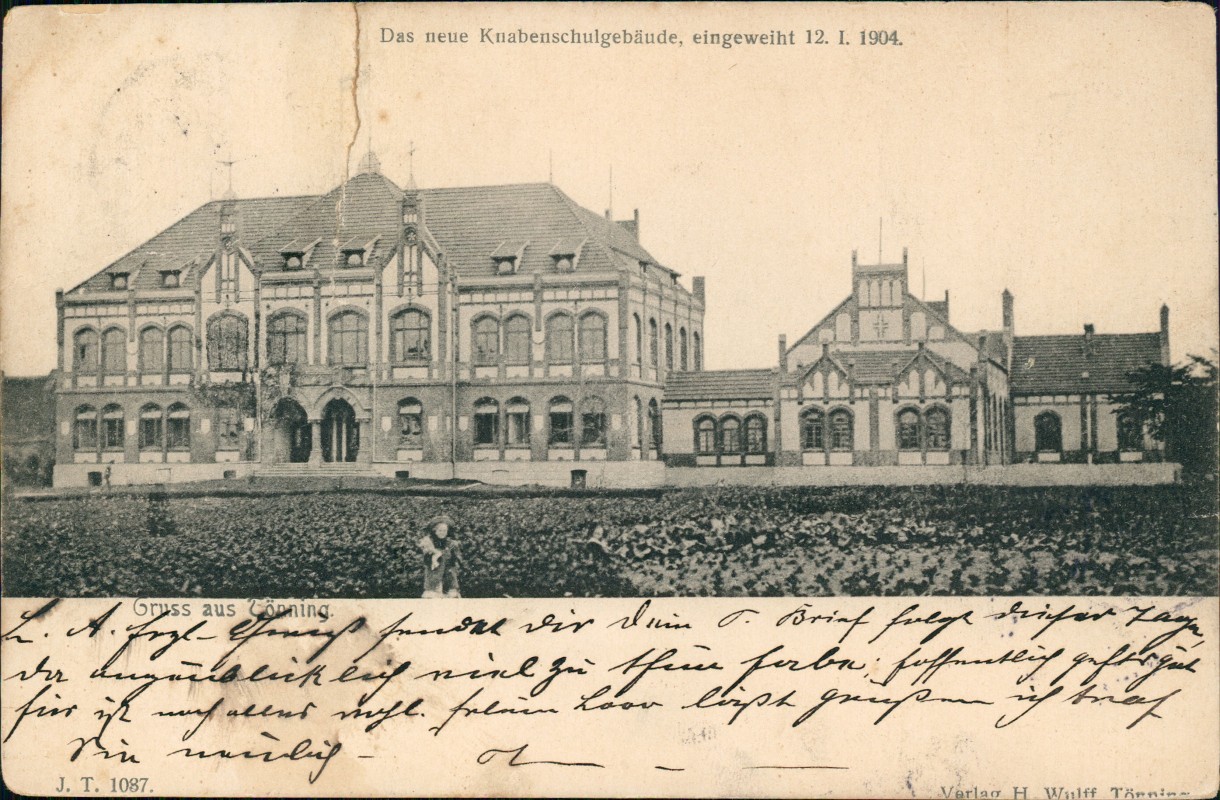 Das neue Knabenschulgebäude, eingeweiht 12. I. 1904.
Gruss aus Tönning.
L. A. Herzl. Gruß sendet dir Dein T. Brief folgt dieser Tage,
da augenblicklich viel zu thun habe; hoffentlich geht's gut
hier ist noch alles wohl. läßt grüßen ich traf
Sie neulich –
J. T. 1087.
Verlag H. Wulff, Tönning.